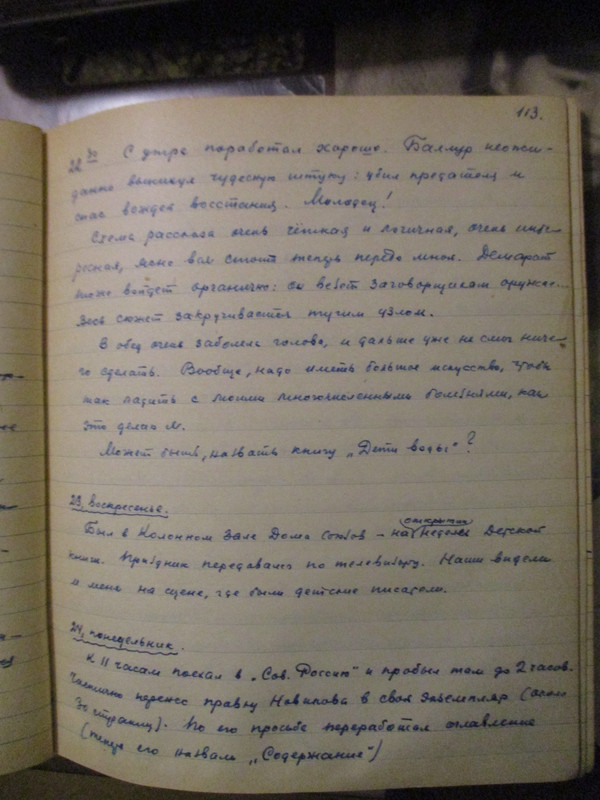 113.
22 С утра поработал хорошо. Балмур неожи-
данно выкинул чудесную штуку: убил предателя и
спас вождей восстания. Молодец!
Схема рассказа очень чёткая и логичная, очень инте-
ресная, ясно вся стоит теперь передо мной. Демарат
тоже войдет органично: он везёт заговорщикам оружие...
Весь сюжет закручивается тугим узлом.
В обед очень заболела голова, и дальше уже не смог ниче-
го сделать. Вообще, надо иметь большое искусство, чтобы
так ладить с моими многочисленными болезнями, как
это делаю я.
Может быть, назвать книгу „Дети воды"?
23, воскресенье.
открытии
Был в Колонном Зале Дома Союзов – на Недели Детской
книги. Праздник передавался по телевизору. Наши видели
и меня на сцене, где были детские писатели.
24, понедельник.
К 11 часам поехал в „Сов. Россию" и пробыл там до 2 часов.
Частично перенес правку Новикова в свой экземпляр (около
30 страниц). По его просьбе переработал оглавление
(теперь его назвали „Содержание")